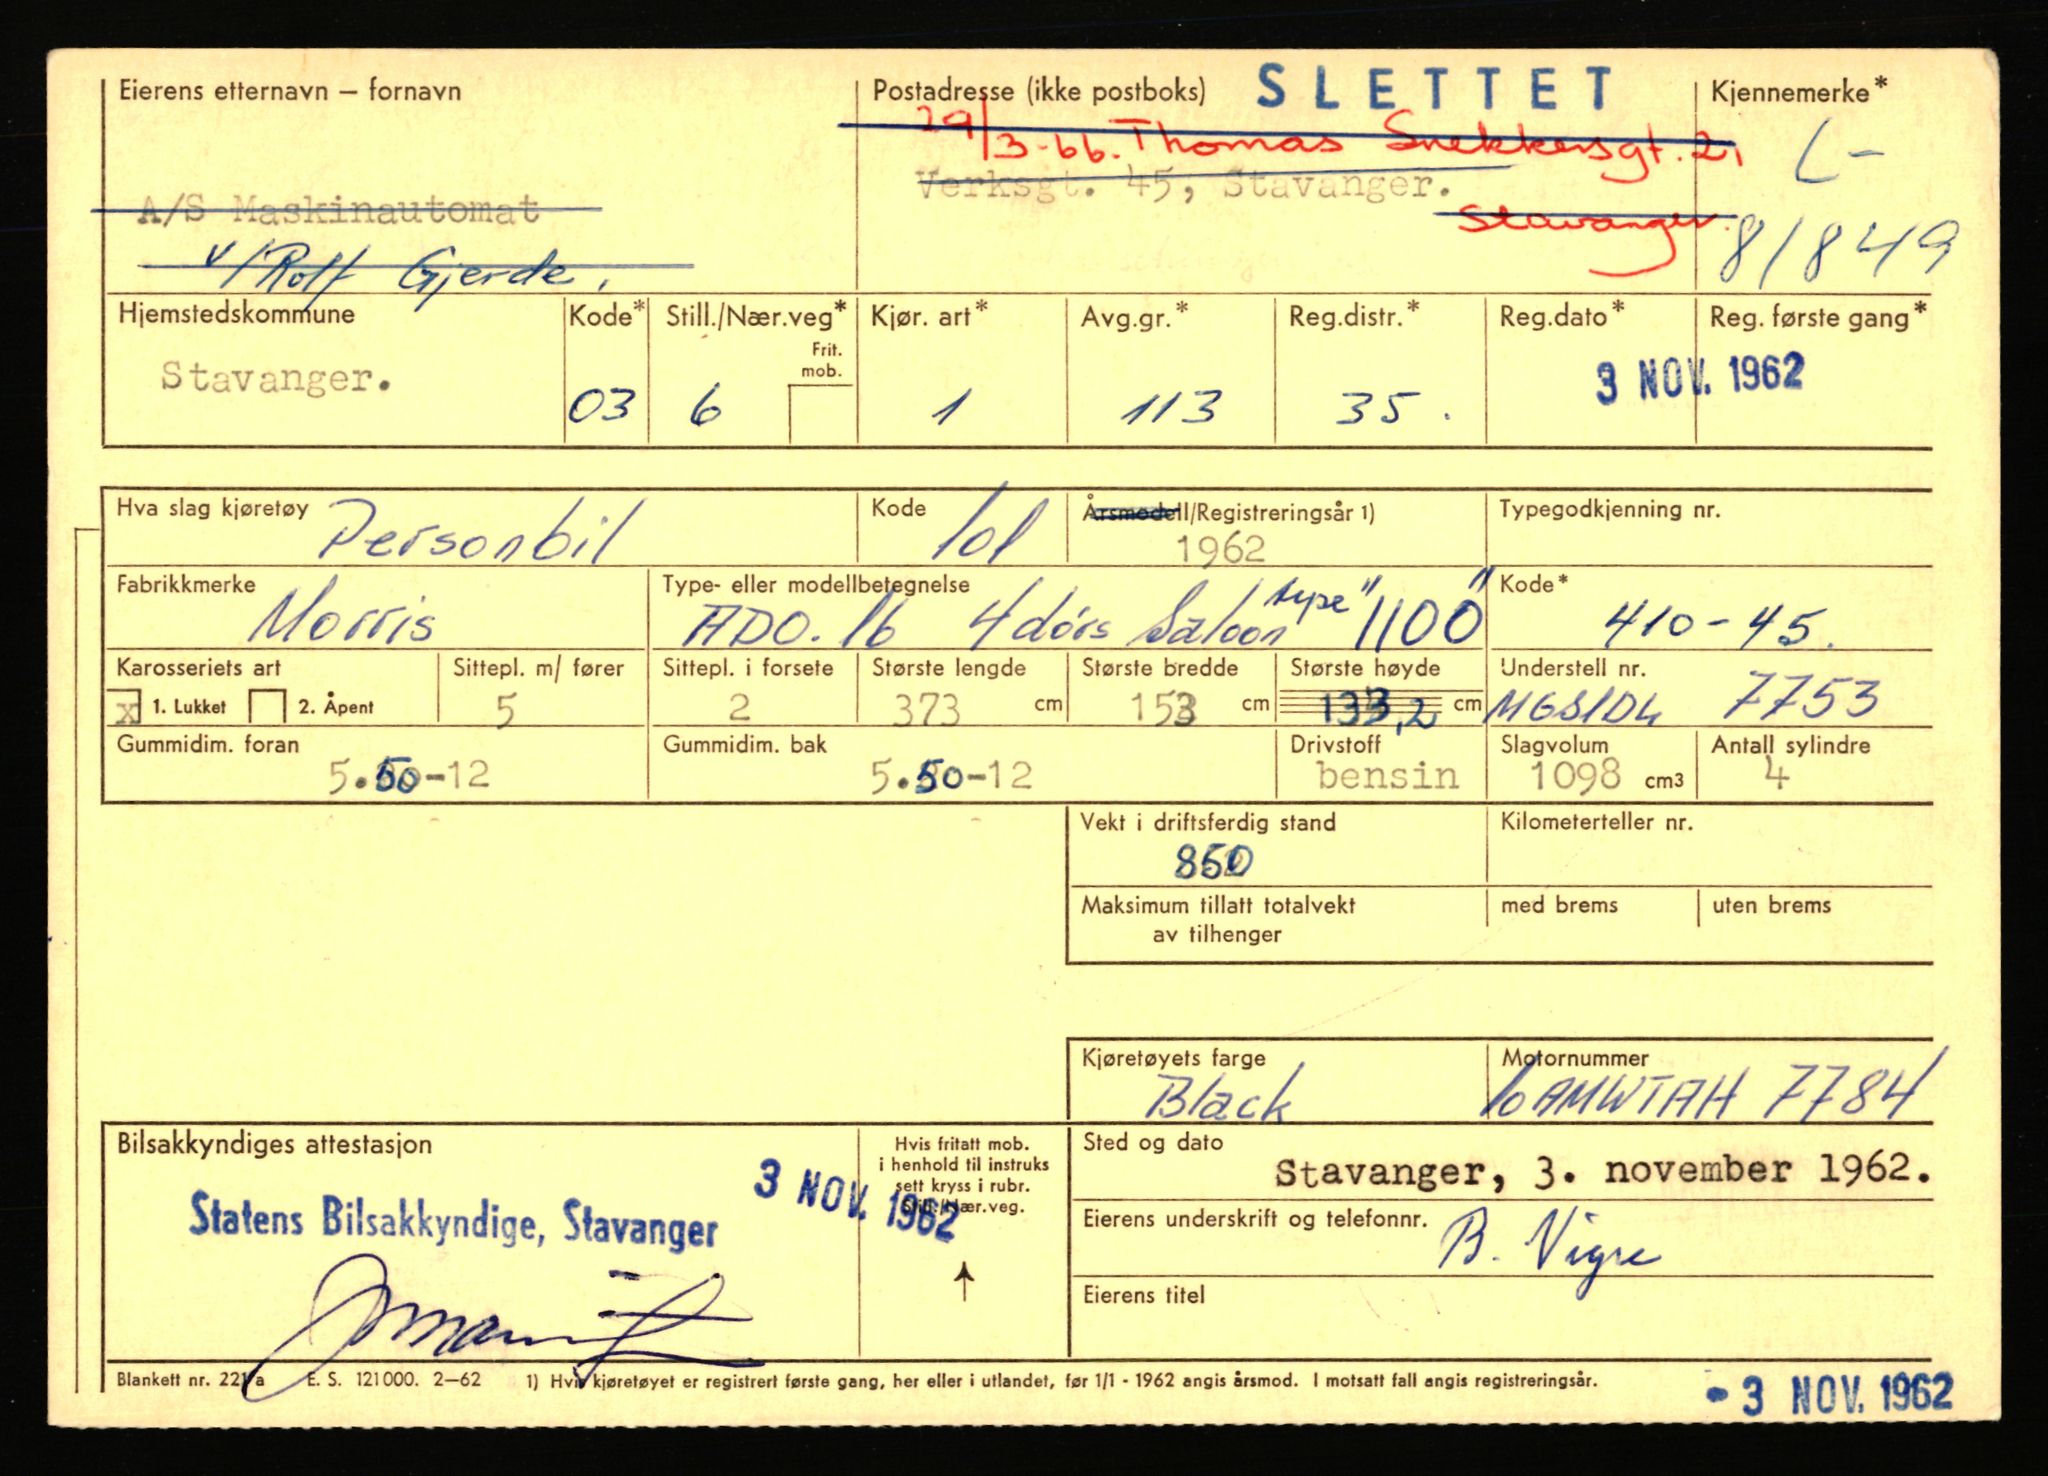 Eierens etternavn – fornavn
Postadresse (ikke postboks)
SLETTET
Kjennemerke*
29/3-66. Thomas Snekkersgt. 21
Stavanger.
L-
81849
A/S Maskinautomat
v/Rolf Gjerde.
Verksgt. 45, Stavanger.
Hjemstedskommune
Kode*
Still./Nær.veg*
Frit. mob.
Kjør. art*
Avg.gr.*
Reg.distr.*
Reg.dato*
Reg. første gang*
Stavanger.
03
6
1
113
35.
3 NOV. 1962
Hva slag kjøretøy
Personbil
Kode
101
Årsmodell/Registreringsår 1)
1962
Typegodkjenning nr.
Fabrikkmerke
Morris
Type- eller modellbetegnelse
ADO. 16 4dørs Saloon type "1100"
Kode*
410-45.
Karosseriets art
x 1. Lukket 2. Åpent
Sittepl. m/ fører
5
Sittepl. i forsete
2
Største lengde
373 cm
Største bredde
153 cm
Største høyde
133,2 cm
Understell nr.
7753
Gummidim. foran
5.50-12
Gummidim. bak
5.50-12
Drivstoff
bensin
Slagvolum
1098 cm3
Antall sylindre
4
Vekt i driftsferdig stand
850
Kilometerteller nr.
Maksimum tillatt totalvekt
av tilhenger
med brems
uten brems
Kjøretøyets farge
Black
Motornummer
10AMWTAH 7784
Bilsakkyndiges attestasjon
Statens Bilsakkyndige, Stavanger
3 NOV. 1962
Hvis fritatt mob.
i henhold til instruks
sett kryss i rubr.
Still./Nær.veg.
Sted og dato
Stavanger, 3. november 1962.
Eierens underskrift og telefonnr.
B. Vigre
Eierens titel
Blankett nr. 221 a E. S. 121000. 2–62 1) Hvis kjøretøyet er registrert første gang, her eller i utlandet, før 1/1 - 1962 angis årsmod. I motsatt fall angis registreringsår.
- 3 NOV. 1962